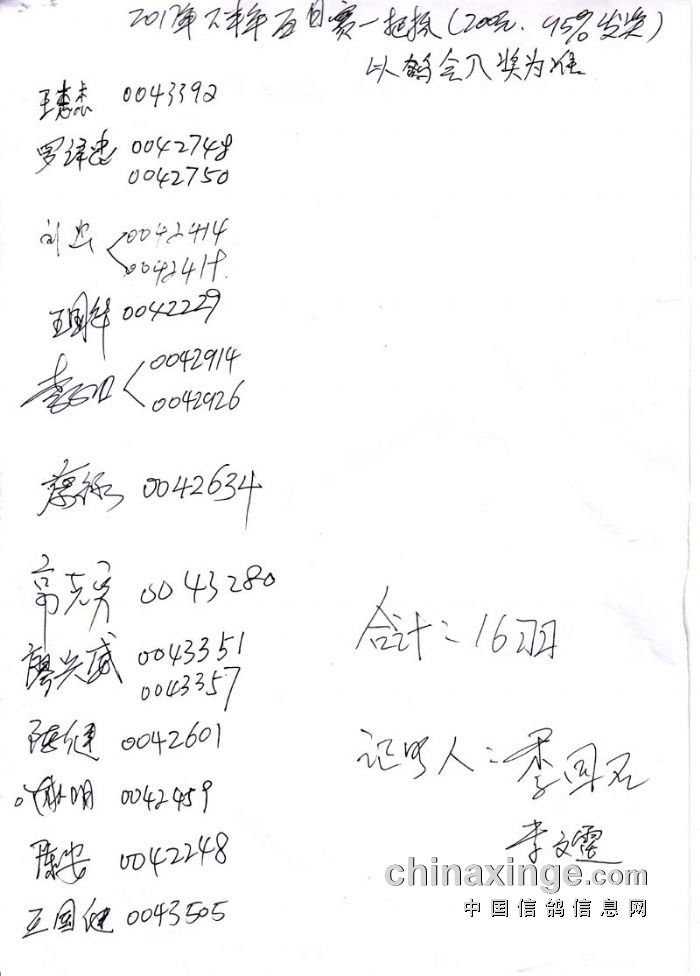 2017年下半年百日赛一把抓(200元.45%发奖)
以鸽会入奖为准
王志杰 0043392
罗泽忠 0042748
0042750
刘忠 0042414
0042418
王国华 0042229
李 0042914
0042926
蔡 0042634
常克军 0043280
廖兴威 0043351
0043357
陈健 0042601
明 0042459
陈安 0042248
王国健 0043505
合计:16羽
证明人:李国石
李文霞
chinaxinge.com
中国信鸽信息网